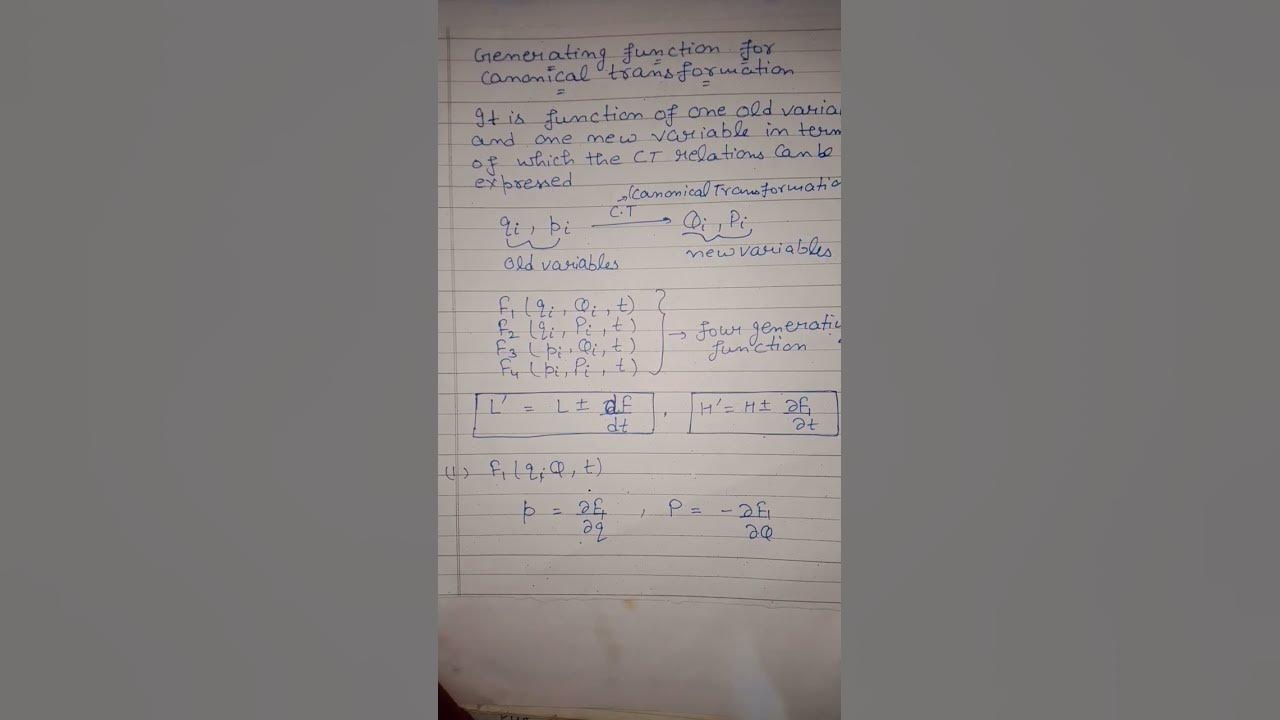 Generating function for
canonical transformation
It is function of one old varia
and one new variable in term
of which the CT relations can be
expressed
→(Canonical Transformatio
qi , pi C.T → Qi , Pi
old variables new variables
F₁ (qi , Qi , t)
F₂ (qi , Pi , t)
F₃ (pi , Qi , t)
F₄ (pi , Pi , t)
→ four generati
function
L' = L ± dF/dt , H' = H ± ∂F₁/∂t
(1) F₁ (q, Q, t)
p = ∂F₁/∂q , P = - ∂F₁/∂Q